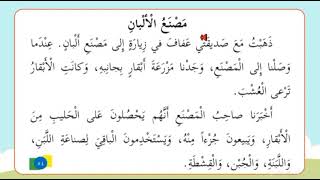 مَصْنَعُ الْأَلْبانِ
ذَهَبْتُ مَعَ صَديقَتي عَفافَ في زِيارَةٍ إلى مَصْنَعِ أَلْبانٍ. عِنْدَما
وَصَلْنا إلى الْمَصْنَعِ، وَجَدْنا مَزْرَعَةَ أَبْقارٍ بِجانِبِهِ، وَكانَتِ الْأَبْقارُ
تَرْعى الْعُشْبَ.
أَخْبَرَنا صاحِبُ الْمَصْنَعِ أَنَّهُم يَحْصُلونَ عَلى الْحَليبِ مِنَ
الْأَبْقارِ، وَيَبيعونَ جُزْءاً مِنْهُ، وَيَسْتَخْدِمونَ الْباقِيَ لِصِناعَةِ اللَّبَنِ،
وَاللَّبَنَةِ، وَالْجُبْنِ، وَالْقِشْطَةِ.